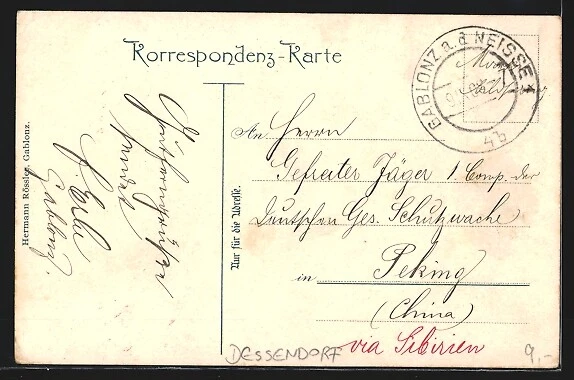 Korrespondenz-Karte
GABLONZ a. d. NEISSE
4b
An Herrn
Gefreiter Jäger 1. Comp. der
Deutschen Ges. Schutzwache
in Peking
(China)
via Sibirien
Nur für die Adresse.
Hermann Rössler, Gablonz.
sendet
Gablonz.
DESSENDORF
9,-